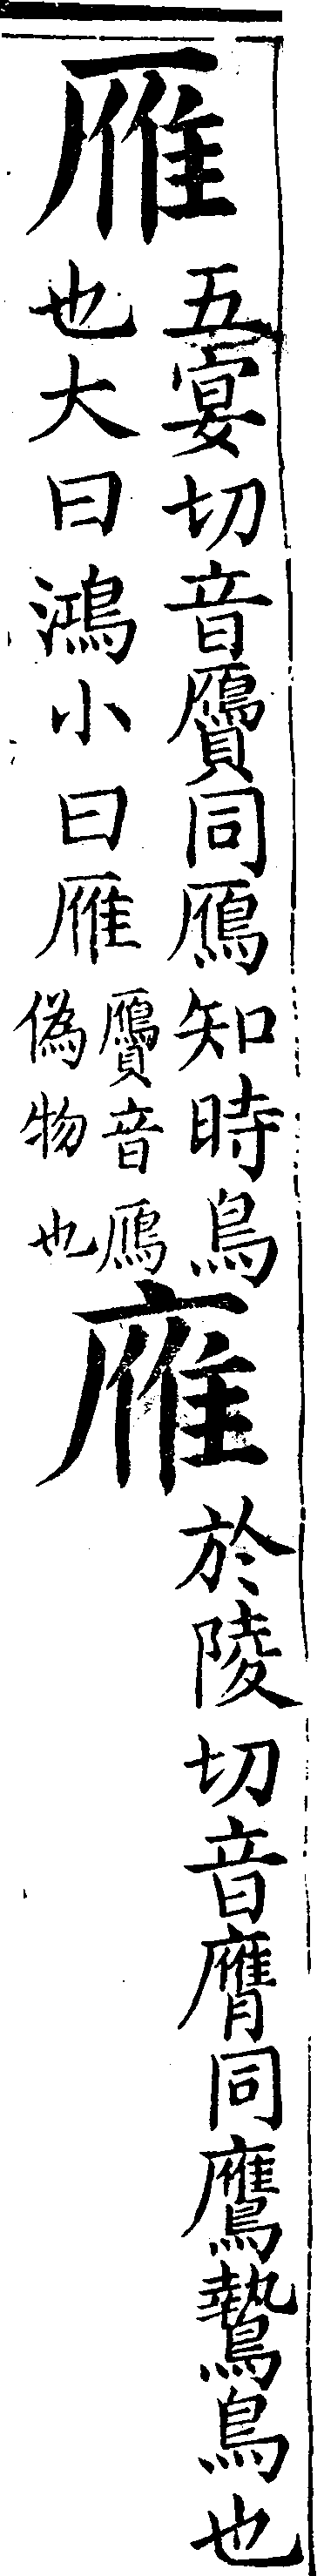 雁
五宴切音贗同鴈知時鳥
也大曰鴻小曰雁
贗音鴈
偽物也
䧹
於陵切音膺同鷹鷙鳥也